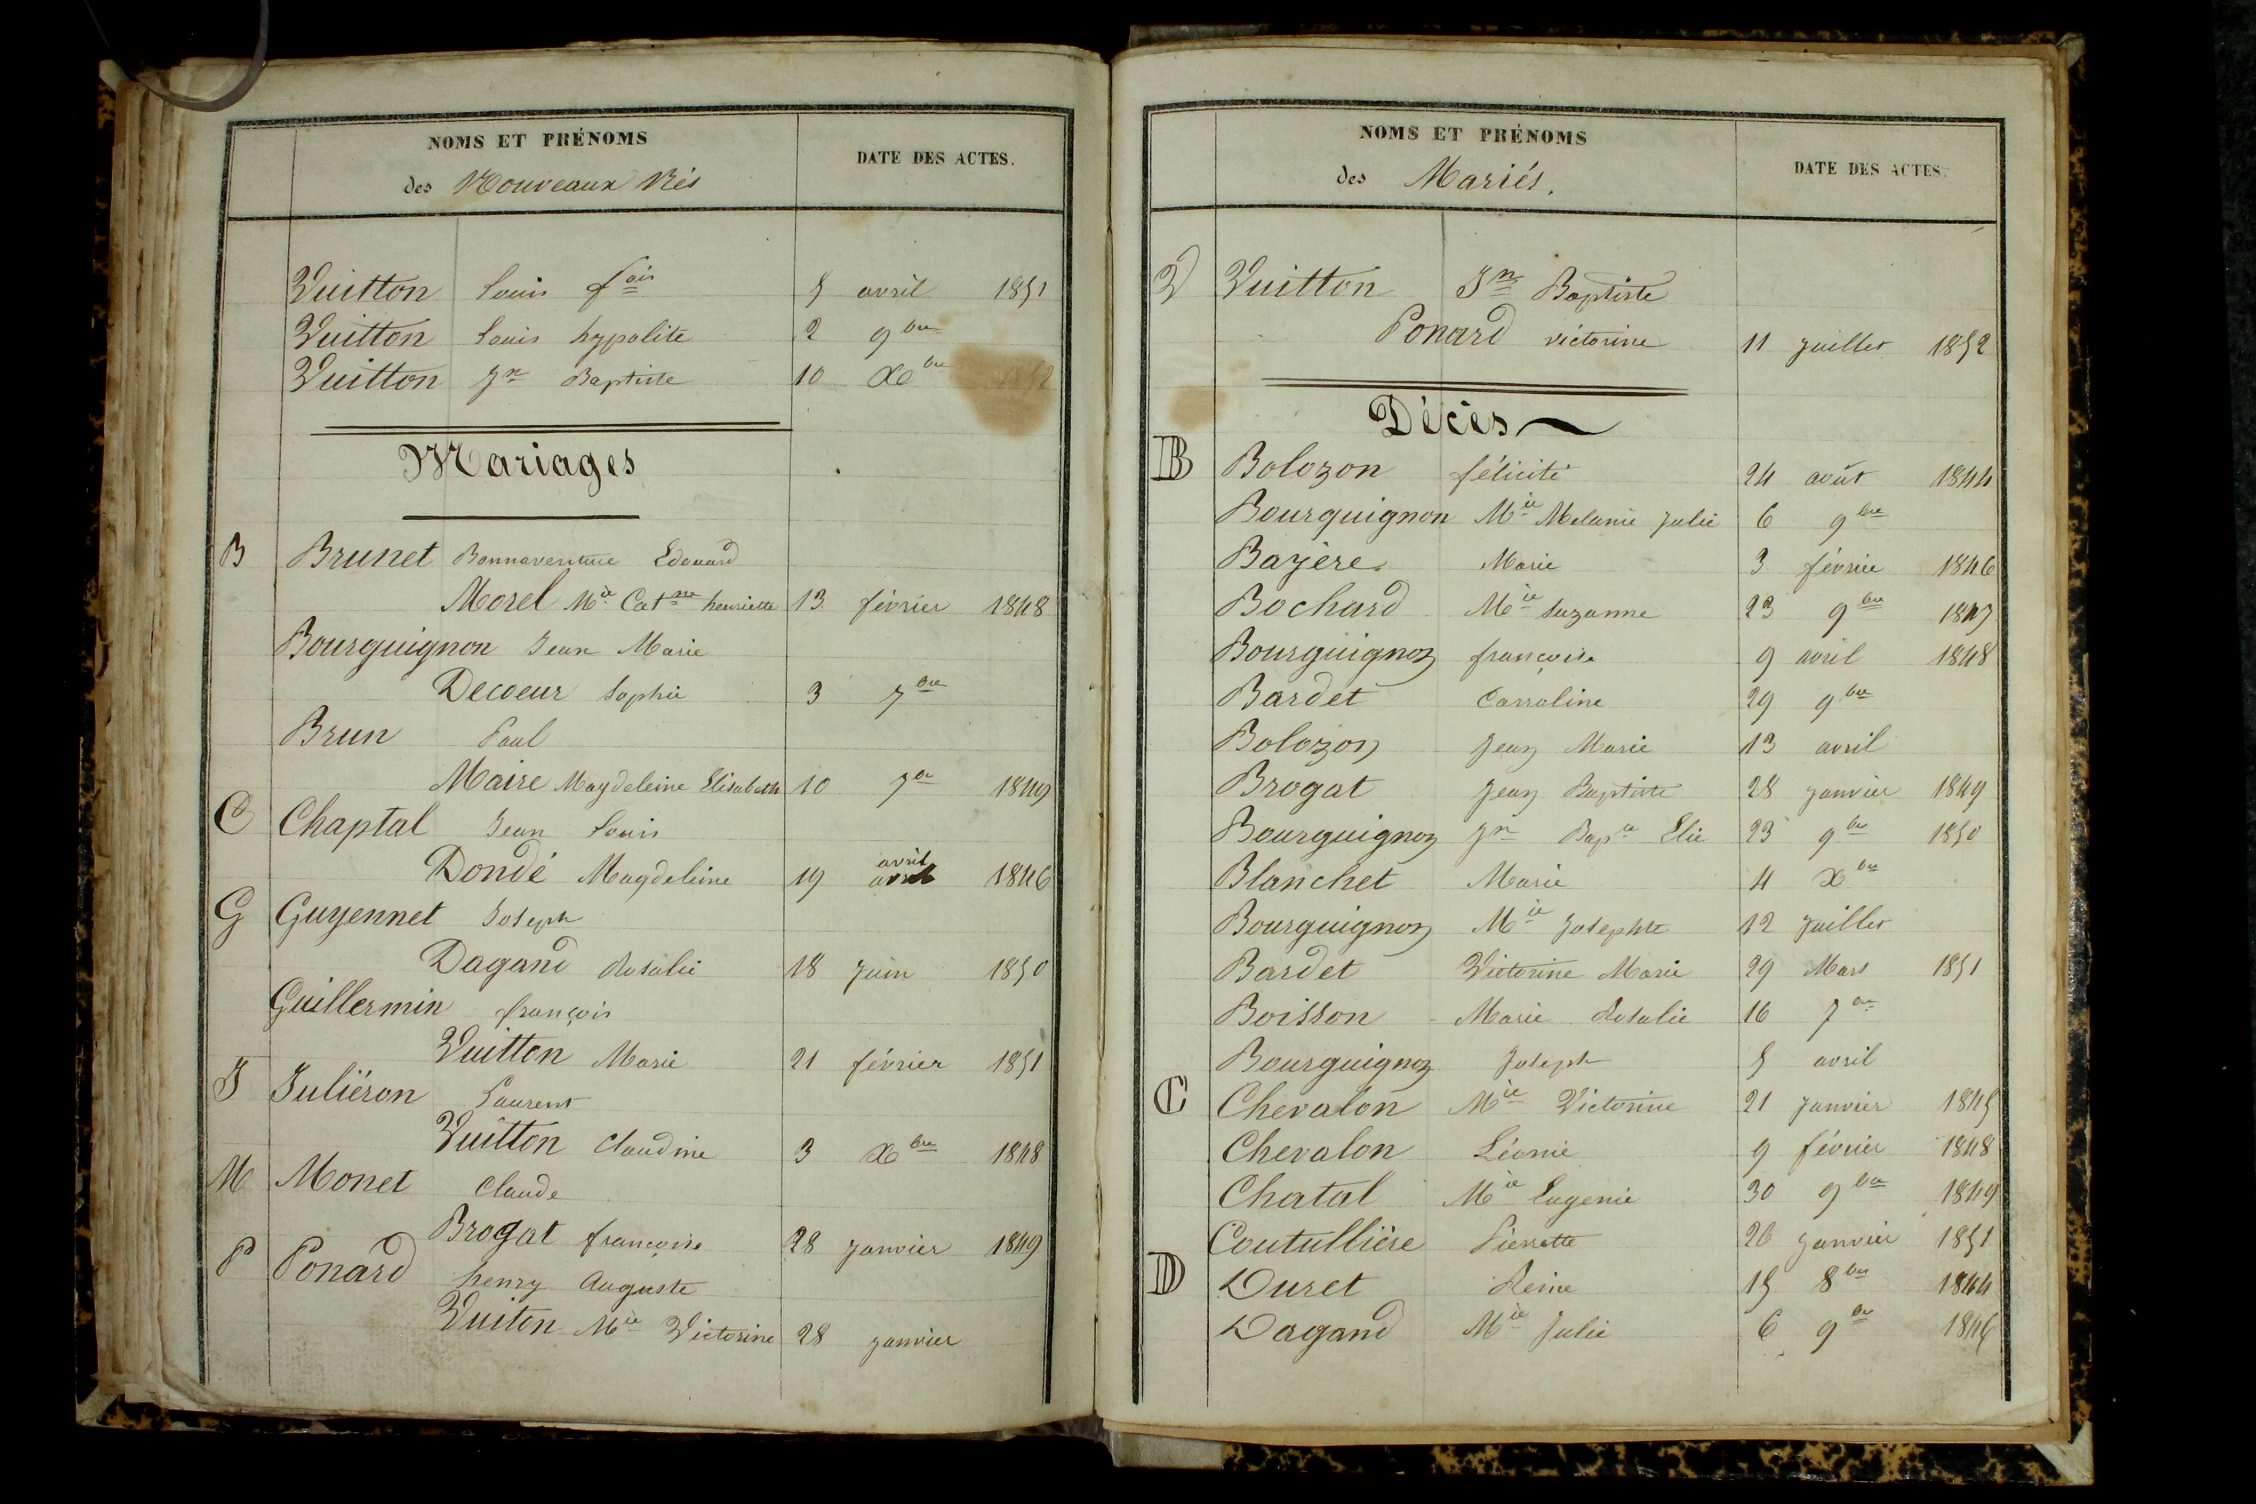 NOMS ET PRÉNOMS
des Nouveaux Nés
DATE DES ACTES.
Vuitton Louis fois 5 avril 1851
Vuitton Louis hypolite 2 9bre
Vuitton Jn Baptiste 10 Xbre 1852
Mariages
B Brunet Bonnaventure Edouard
Morel Mie Catne henriette 13 février 1848
Bourguignon Jean Marie
Decoeur Sophie 3 7bre
Brun Paul
Maire Magdeleine Elisabeth 10 7bre 1849
C Chaptal Jean Louis
Dondé Magdeleine 19 avril avril 1846
G Guyennet Joseph
Dagand Rosalie 18 juin 1850
Guillermin françois
Vuitton Marie 21 février 1851
J Juliéron Laurent
Vuitton Claudine 3 Xbre 1848
M Monet Claude
Brogat françoise 28 janvier 1849
P Ponard henry Auguste
Vuiton Mie Victorine 28 janvier
NOMS ET PRÉNOMS
des Mariés.
DATE DES ACTES.
V Vuitton Jn Baptiste
Ponard victorine 11 juillet 1852
Décès
B Bolozon félicité 24 août 1844
Bourguignon Mie Melanie Julie 6 9bre
Bayère Marie 3 février 1846
Bochard Mie Suzanne 23 9bre 1847
Bourguignon françoise 9 avril 1848
Bardet Carroline 29 9bre
Bolozon Jean Marie 13 avril
Brogat Jean Baptiste 28 janvier 1849
Bourguignon Jn Bapte Elie 23 9bre 1850
Blanchet Marie 4 Xbre
Bourguignon Mie Josephte 12 juillet
Bardet Victorine Marie 29 Mars 1851
Boisson Marie Rosalie 16 7bre
Bourguignon Joseph 5 avril
C Chevalon Mie Victorine 21 janvier 1845
Chevalon Léonie 9 février 1848
Chatal Mie Eugenie 30 9bre 1849
Coutullière Pierrette 26 janvier 1851
D Duret Reine 15 8bre 1844
Dagand Mie Julie 6 9bre 1846